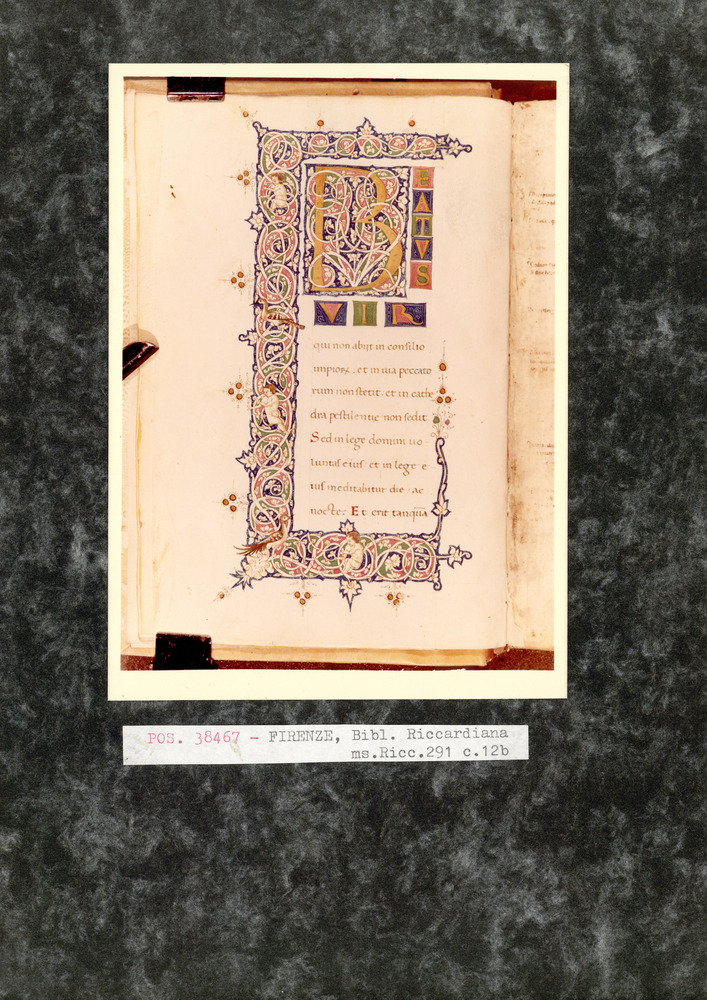 BEATVS
VIR
qui non abijt in consilio
impioꝝ. et in uia peccato
rum non stetit. et in cathe
dra pestilentie non sedit
Sed in lege domini uo
luntas eius. et in lege e
ius meditabitur die. ac
nocte: Et erit tanquā
POS. 38467 - FIRENZE, Bibl. Riccardiana
ms.Ricc.291 c.12b